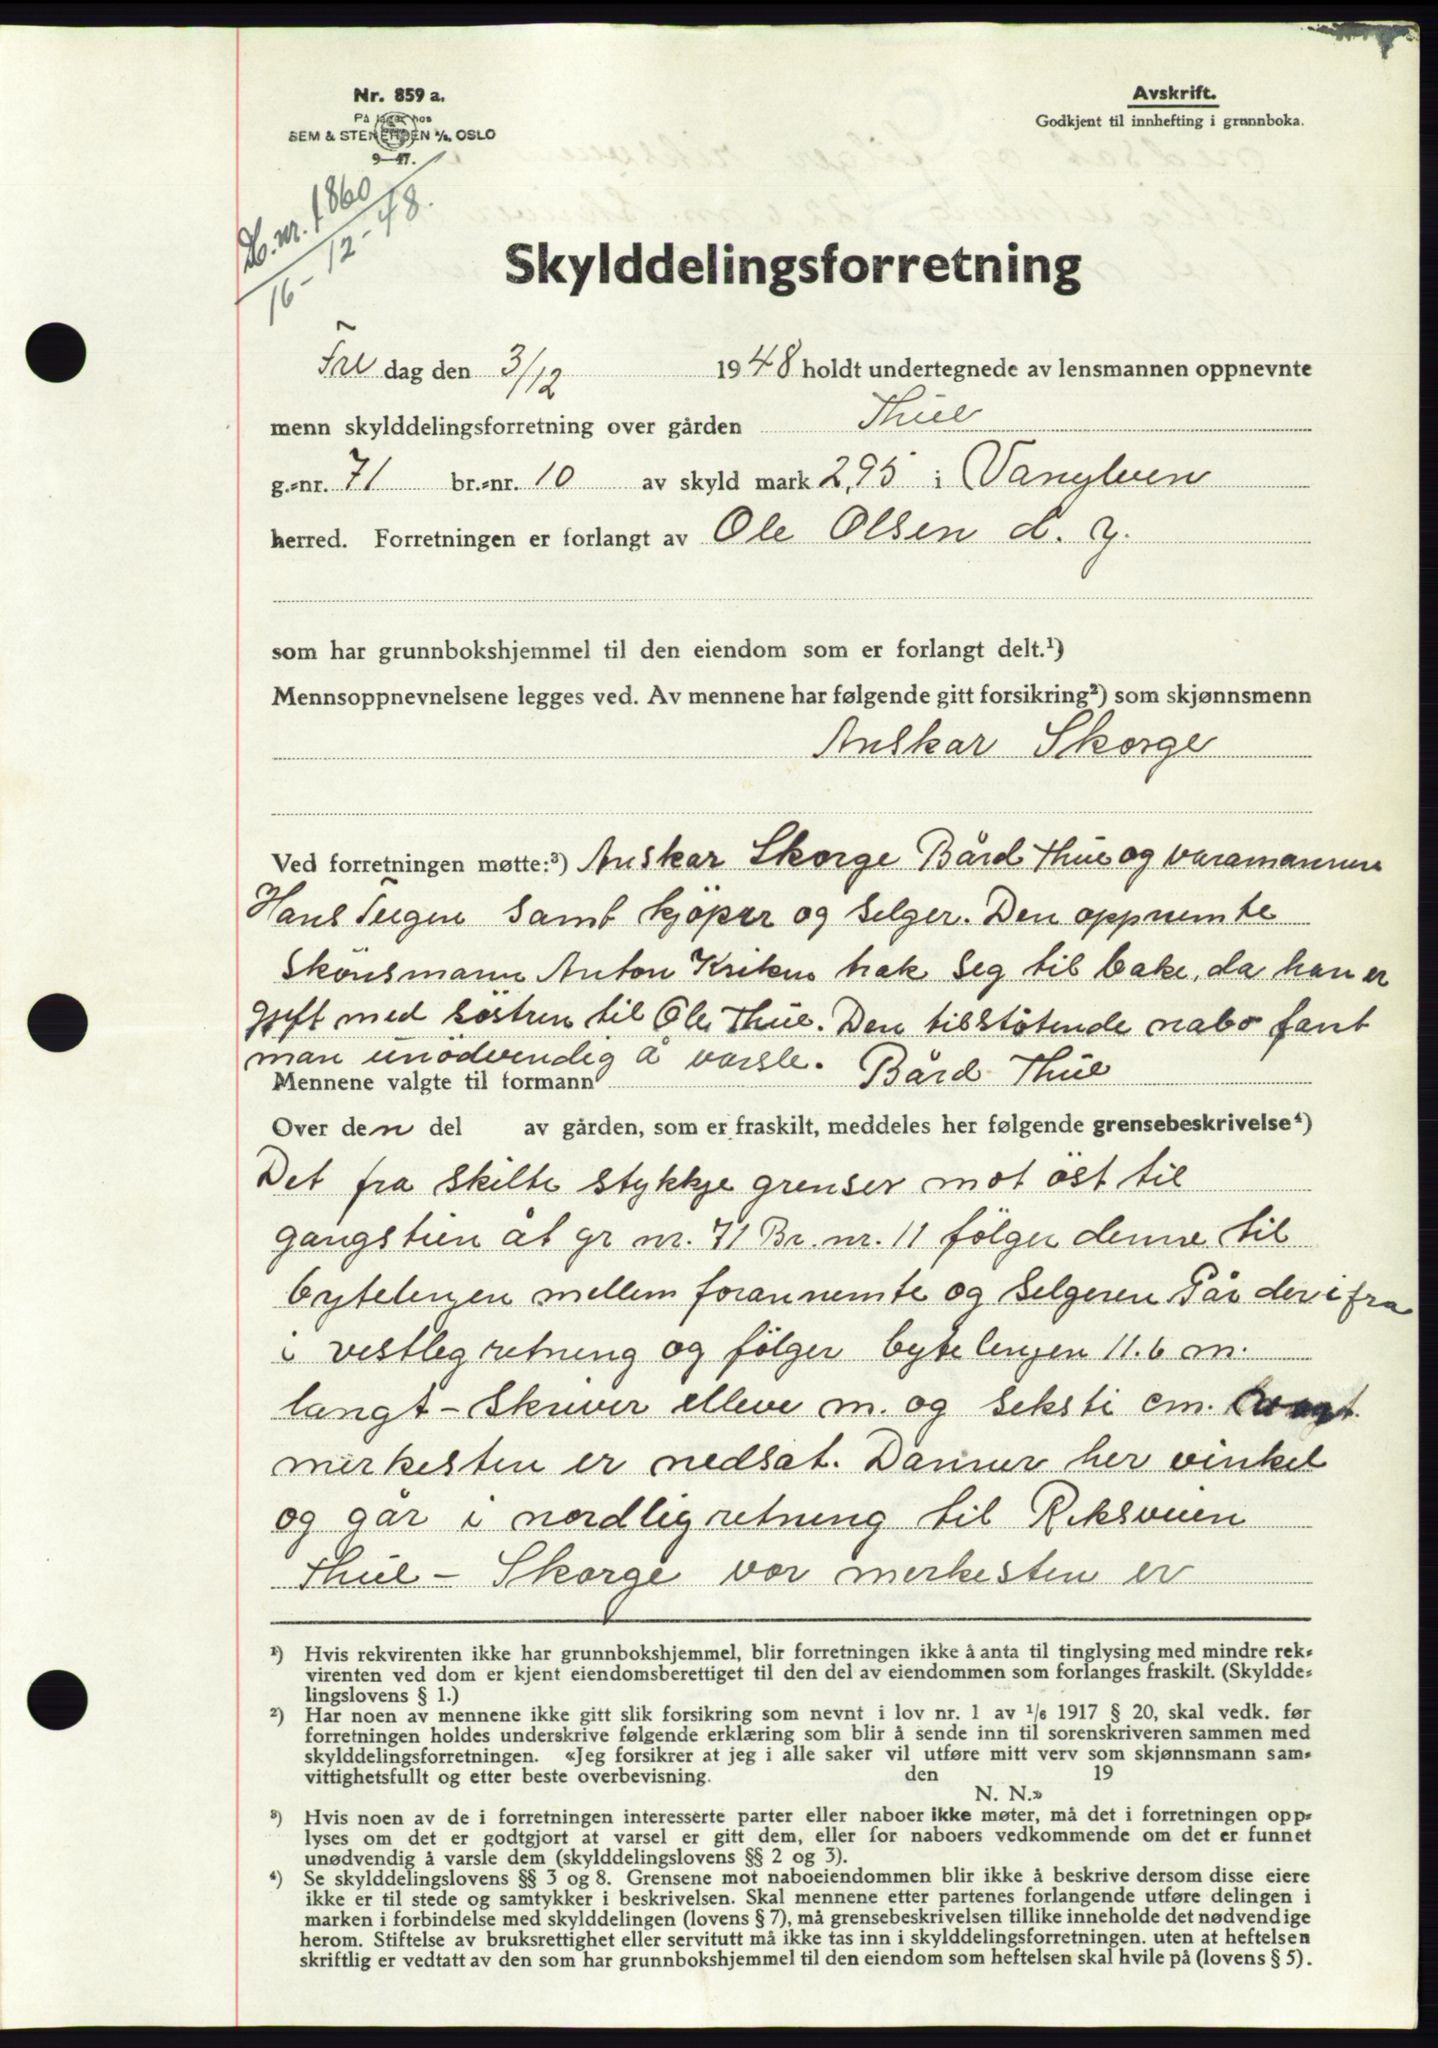 Nr. 859 a.
På lager hos
SEM & STENERSEN A/S, OSLO
9—47.
Avskrift.
Godkjent til innhefting i grunnboka.
D. nr. 1860
16-12-48.
Skylddelingsforretning
Fre dag den 3/12 1948 holdt undertegnede av lensmannen oppnevnte
menn skylddelingsforretning over gården Thue
g.=nr. 71 br.=nr. 10 av skyld mark 2,95 i Vanylven
herred. Forretningen er forlangt av Ole Olsen d. y.
som har grunnbokshjemmel til den eiendom som er forlangt delt.¹)
Mennsoppnevnelsene legges ved. Av mennene har følgende gitt forsikring²) som skjønnsmenn
Anskar Skorge
Ved forretningen møtte:³) Anskar Skorge Bård Thue og varamannen
Hans Teigen samt kjöper og selger. Den oppnemte
skönsmann Anton Kriken trak seg til bake, da han er
gift med söstren til Ole Thue. Den tilstötende nabo fant
man unödvendig å varsle.
Mennene valgte til formann Bård Thue
Over den del av gården, som er fraskilt, meddeles her følgende grensebeskrivelse⁴)
Det fra skilte stykkje grenser mot öst til
gangstien åt gr nr. 71 Br. nr. 11 fölger denne til
bytelinjen mellem forannemte og selgeren Går der i fra
i vestleg retning og fölger bytelinjen 11.6 m.
langt – skriver elleve m. og seksti cm.
merkesten er nedsat. Danner her vinkel
og går i nordlig retning til Riksveien
Thue – Skorge vor merkesten er
¹) Hvis rekvirenten ikke har grunnbokshjemmel, blir forretningen ikke å anta til tinglysing med mindre rek=
virenten ved dom er kjent eiendomsberettiget til den del av eiendommen som forlanges fraskilt. (Skyldde=
lingslovens § 1.)
²) Har noen av mennene ikke gitt slik forsikring som nevnt i lov nr. 1 av 1/6 1917 § 20, skal vedk. før
forretningen holdes underskrive følgende erklæring som blir å sende inn til sorenskriveren sammen med
skylddelingsforretningen. «Jeg forsikrer at jeg i alle saker vil utføre mitt verv som skjønnsmann sam=
vittighetsfullt og etter beste overbevisning. den 19
N. N.»
³) Hvis noen av de i forretningen interesserte parter eller naboer ikke møter, må det i forretningen opp=
lyses om det er godtgjort at varsel er gitt dem, eller for naboers vedkommende om det er funnet
unødvendig å varsle dem (skylddelingslovens §§ 2 og 3).
⁴) Se skylddelingslovens §§ 3 og 8. Grensene mot naboeiendommen blir ikke å beskrive dersom disse eiere
ikke er til stede og samtykker i beskrivelsen. Skal mennene etter partenes forlangende utføre delingen i
marken i forbindelse med skylddelingen (lovens § 7), må grensebeskrivelsen tillike inneholde det nødvendige
herom. Stiftelse av bruksrettighet eller servitutt må ikke tas inn i skylddelingsforretningen. uten at heftelsen
skriftlig er vedtatt av den som har grunnbokshjemmel til den eiendom som heftelsen skal hvile på (lovens § 5).